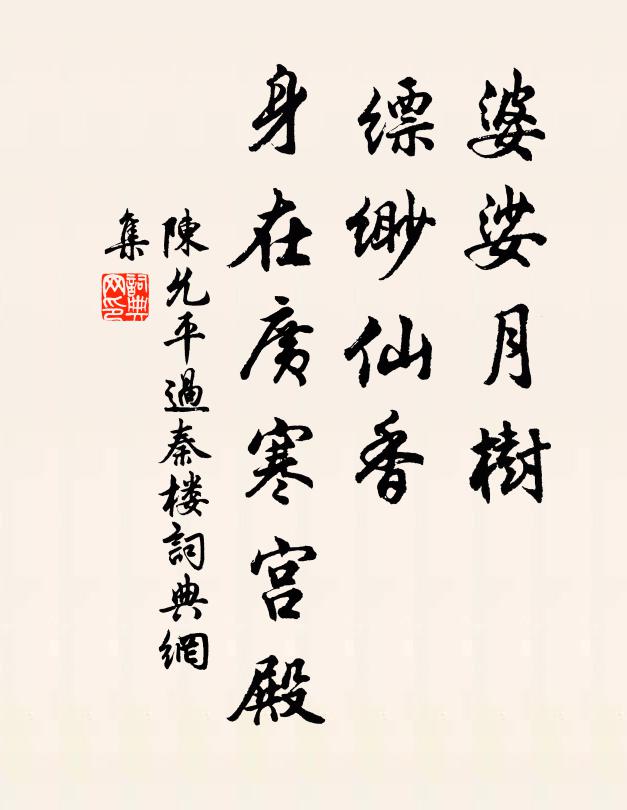 婆娑月樹
縹缈仙香
身在廣寒宫殿
陳允平過秦楼詞典網
集
詞典
网印